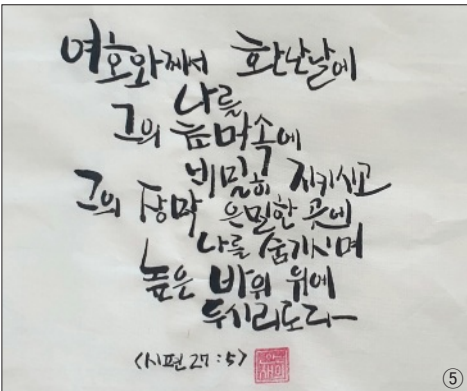 여호와께서 환난날에
나를
그의 초막속에
비밀히 지키시고
그의 장막 은밀한 곳에
나를 숨기시며
높은 바위 위에
두시리로다
<시편 27:5>
⑤